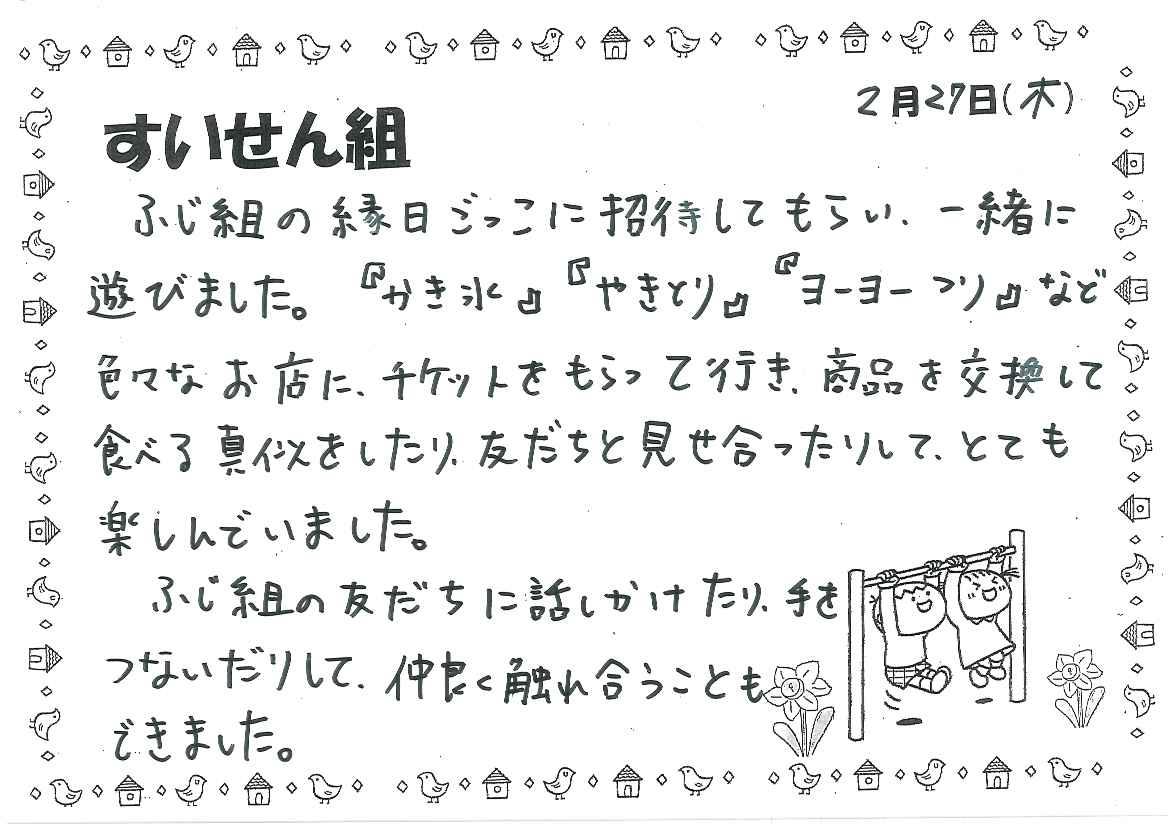 2月27日(木)
すいせん組
ふじ組の縁日ごっこに招待してもらい、一緒に
遊びました。『かき氷』『やきとり』『ヨーヨーつり』など
色々なお店に、チケットをもらって行き、商品を交換して
食べる真似をしたり、友だちと見せ合ったりして、とても
楽しんでいました。
ふじ組の友だちに話しかけたり、手を
つないだりして、仲良く触れ合うことも
できました。